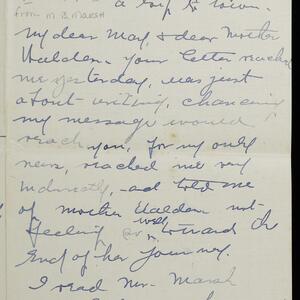 a trip to town.
from M B Marsh
My dear May, & dear Mother
Waldon - your letter reached
me yesterday, was just
about writing, chancing
my message would
reach you, for my only
news, reached me very
indirectly, and told me
of mother Waldon not
feeling well toward the
End of her journey.
I read Mr. Marsh